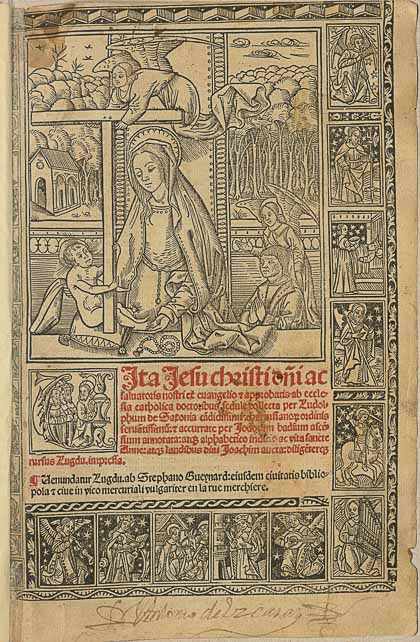 Ita Jesu christi dñi ac
saluatoris nostri ex euangelio ⁊ approbatis ab eccle-
sia catholica doctoribus sedule collecta per Ludol-
phum de Saxonia cartusianorū ordinis
⁊ accurate per Jodocum badium ascē-
sium annotata: atqꝫ alphabetico indice ac vita sancte
Anne: atqꝫ laudibus diui Joachim aucta: diligēterqꝫ
rursus Lugdu. impressa.
¶ Uenundantur Lugdu. ab Stephano Gueynard: eiusdem ciuitatis biblio-
pola ⁊ ciue in vico mercuriali vulgariter en la rue merchiere.
Antonio de